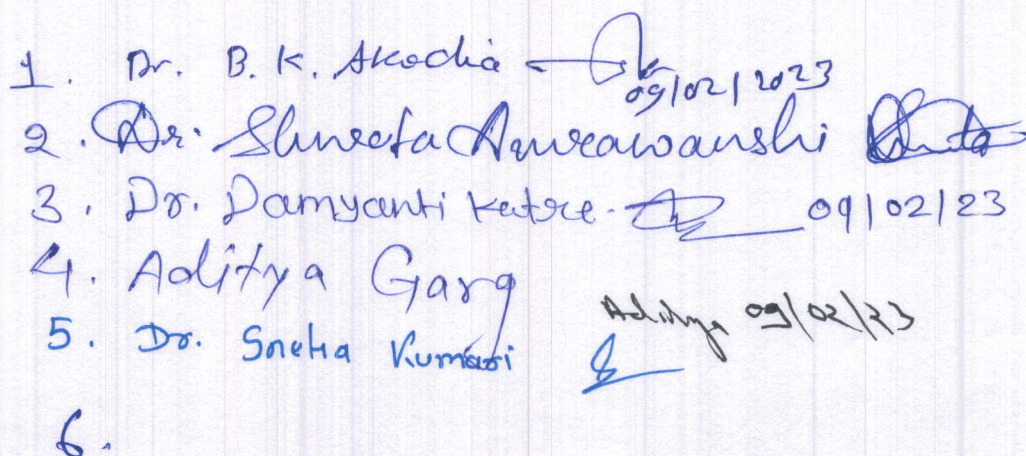 1. Dr. B. K. Akodia
09/02/2023
2. Dr. Shweta
3. Dr. Damyanti Katre. 09/02/23
4. Aditya Garg
Aditya 09/02/23
5. Dr. Sneha Kumari
6.